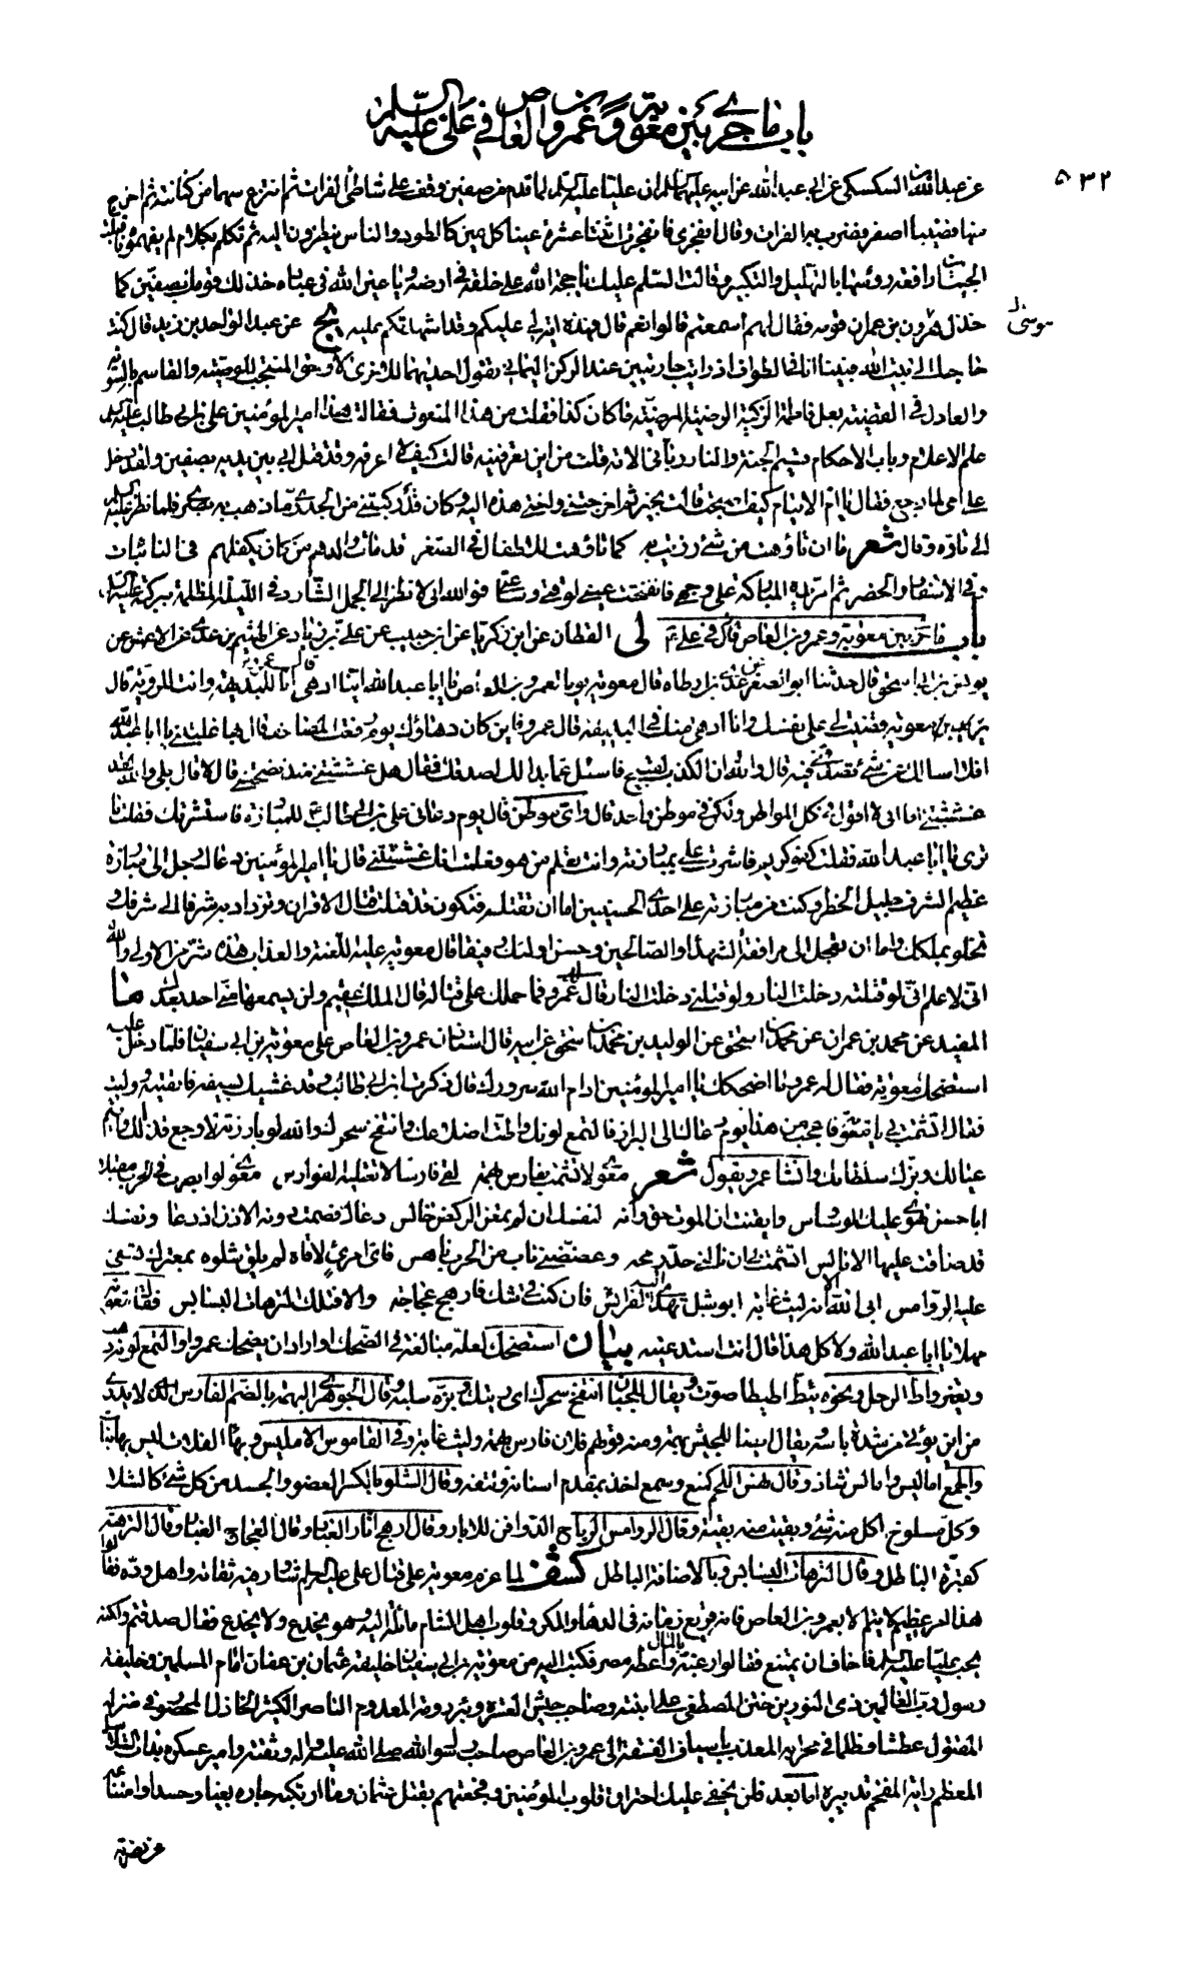 باب ما جرى بين معوية و عمرو بن العاص في علي عليه السلم
٥٣٢
عن عبدالله السكسكي عن ابي عبد الله عن ابيه عليهما السلم ان عليا عليه السلم لما قدم من صفين وقف على شاطئ الفرات ثم انتزع سهما من كنانته ثم اخرج
منها قضيبا اصفر فضرب به الفرات وقال انفجري فانفجرت اثنتا عشرة عينا كل عين كالطود والناس ينظرون اليه ثم تكلم بكلام لم يفهموه فاقبلت
الحيتان رافعة رؤسها بالتهليل والتكبير وقالت السلم عليك يا حجة الله على خلقه في ارضه ويا عين الله في عباده خذلك قومك بصفين كما
خذل هرون بن عمران قومه فقال لهم اسمعتم قالوا نعم قال فهذه اية لي عليكم وقد اشهدتكم عليه يج عن عبد الواحد بن زيد قال كنت
موسى
حاجا الى بيت الله فبينا انا في الطواف اذ رايت جاريتين عند الركن اليماني تقول احديهما للاخرى لا وحق المنتجب للوصية والقاسم بالسوية
والعادل في القضية بعل فاطمة الزكية الرضية المرضية ما كان كذا فقلت من هذا المنعوت فقالت هذا امير المؤمنين علي بن ابي طالب عليه السلم
علم الاعلام وباب الاحكام قسيم الجنة والنار رباني الامة قلت من اين تعرفينه قالت كيف لا اعرفه وقد قتل ابي بين يديه بصفين ولقد دخل
على امي لما رجع فقال يا ام الايتام كيف اصبحت قالت بخير ثم اخرجتني واختي هذه اليه وكان قد ركبني من الجدري ما ذهب به بصري فلما نظر عليه السلم
الي تاوه وقال شعر ما ان تاوهت من شئ رزيت به كما تاوهت للاطفال في الصغر قد مات والدهم من كان يكفلهم في النائبات
وفي الاسفار والحضر ثم امر يده المباركة على وجهي فانفتحت عيني لوقتي وساعتي فوالله اني لانظر الى الجمل الشارد في الليلة المظلمة ببركته عليه السلم
باب ما جرى بين معوية وعمرو بن العاص في علي ع لى القطان عن ابن زكريا عن ابن حبيب عن علي بن زياد عن الهيثم بن عدي عن الاعمش عن
يونس بن ابي اسحق قال حدثنا ابو الصقر عن عدي بن ارطاه قال معوية يوما لعمرو بن العاص يا ابا عبد الله اينا ادهى قال عمرو انا للبديهة وانت للروية قال
معوية قضيت لي على نفسك وانا ادهى منك في البديهة قال عمرو فاين كان دهاؤك يوم رفعت المصاحف قال بها غلبتني يا ابا عبد الله
افلا اسالك عن شئ تصدقني فيه قال والله ان الكذب لقبيح فاسئل عما بدا لك اصدقك فقال هل غششتني منذ نصحتني قال لا قال بلى والله لقد
غششتني اما اني لا اقول في كل المواطن ولكن في موطن واحد قال واي موطن قال يوم دعاني علي بن ابي طالب للمبارزة فاستشرتك فقلت ما
ترى يا ابا عبد الله فقلت كفو كريم فاشرت علي بمبارزته وانت تعلم من هو فعلمت انك غششتني قال يا امير المؤمنين دعاك رجل الى مبارزته
عظيم الشرف جليل الخطر وكنت من مبارزته على احدى الحسنيين اما ان تقتله فتكون قد قتلت قتال الاقران وتزداد به شرفا الى شرفك و
تخلو بملكك واما ان تعجل الى مرافقة الشهداء والصالحين وحسن اولئك رفيقا قال معوية عليه اللعنة والعذاب هذه شر من الاولى والله
اني لاعلم اني لو قتلته دخلت النار ولو قتلني دخلت النار قال عمرو فما حملك على قتاله قال الملك عقيم ولن يسمعها مني احد بعدك ما
المفيد عن محمد بن عمران عن محمد بن اسحق عن الوليد بن محمد بن اسحق عن ابيه قال استاذن عمرو بن العاص على معوية بن ابي سفيان فلما دخل عليه
استضحك معوية فقال له عمرو ما اضحكك يا امير المؤمنين ادام الله سرورك قال ذكرت ابن ابي طالب وقد غشيك بسيفه فاتقيته ووليت
فقال اتشمت بي يا معوية فاعجب من هذا يوم دعاك الى البراز فالتمع لونك واطت اضلاعك وانتفخ سحرك والله لو بارزته لاوجع قذالك وايتم
عيالك وبزك سلطانك وانشا عمرو يقول شعر معوي لا تشمت بفارس بهمة لقى فارسا لا تعتليه الفوارس معوي لو ابصرت في الحرب مقبلا
ابا حسن تهوي عليك الوساوس وايقنت ان الموت حق وانه لنفسك ان لم تمعن الركض خالس دعاك فصمت دونه الاذن اذ دعا ونفسك
قد ضاقت عليها الامالس اتشمت بي ان نالني حد رمحه وعضضني ناب من الحرب ناهس فاي امرئ لاقاه لم يلق شلوه بمعترك تسفي
عليه الروامس ابى الله الا انه ليث غابة ابو شبل تهدى اليه الفرائس فان كنت في شك فارهج عجاجة والا فتلك الترهات البسابس فقال معوية
مهلا يا ابا عبد الله ولا كل هذا قال انت استدعيته بيان استضحك لعله مبالغة في الضحك او اراد ان يضحك عمرو او التمع لونه ذهب
وتغير واط الرحل ونحوه يئط اطيطا صوت ويقال للجبان انتفخ سحرك اي رئتك وبزه سلبه وقال الجوهري البهمة بالضم الفارس الذي لا يدرى
من اين يؤتى من شدة باسه ويقال ايضا للجيش بهمة ومنه قولهم فلان فارس بهمة وليث غابة وفي القاموس الامليس وبهاء الفلاة ليس بها نبات
والجمع اماليس وامالس شاذ وقال نهس اللحم كمنع وسمع اخذه بمقدم اسنانه ونتفه وقال الشلو بالكسر العضو والجسد من كل شئ كالشلا
وكل مسلوخ اكل منه شئ وبقيت منه بقية وقال الروامس الرياح الدوافن للاثار وقال ارهج اثار الغبار وقال العجاج الغبار وقال الترهة
كقبرة الباطل وقال الترهات البسابس وبالاضافة الباطل كشف لما عزم معوية على قتال علي عليه السلم شاور فيه ثقاته واهل وده فقالوا
هذا امر عظيم لا يتم الا بعمرو بن العاص فانه قريع زمانه في الدهاء والمكر وقلوب اهل الشام مائلة اليه وهو يخدع ولا يخدع فقال صدقتم ولكنه
يحب عليا عليه السلم فاخاف ان يمتنع فقالوا رغبه بالمال واعطه مصر فكتب اليه من معوية بن ابي سفيان خليفة عثمان بن عفان امام المسلمين وخليفة
رسول رب العالمين ذي النورين ختن المصطفى على ابنتيه وصاحب جيش العسرة وبئر رومة المعدوم الناصر الكثير الخاذل المحصور في منزله
المقتول عطشا وظلما في محرابه المعذب باسياف الفسقة الى عمرو بن العاص صاحب رسول الله صلى الله عليه واله وثقته وامير عسكره بذات السلاسل
المعظم رايه المفخم تدبيره اما بعد فلن يخفى عليك احتراق قلوب المؤمنين وفجعتهم بقتل عثمان وما ارتكبه جاره بغيا وحسدا وامتناعه
عن نصرته